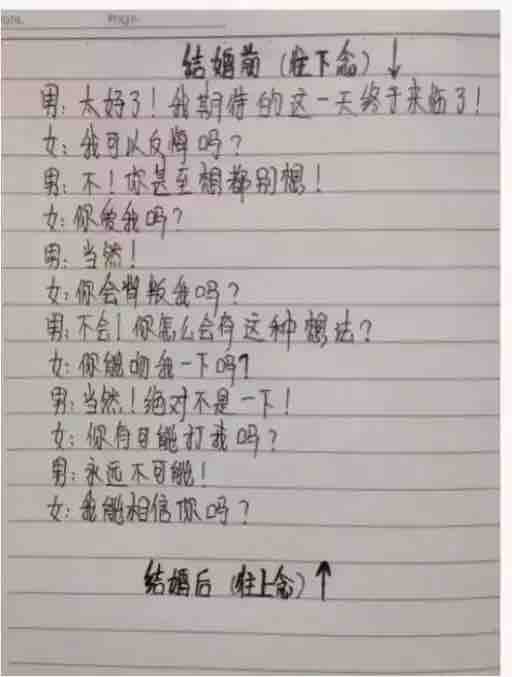 Page
结婚前（往下念）↓
男：太好了！我期待的这一天终于来临了！
女：我可以反悔吗？
男：不！你甚至想都别想！
女：你爱我吗？
男：当然！
女：你会背叛我吗？
男：不会！你怎么会有这种想法？
女：你能吻我一下吗？
男：当然！绝对不是一下！
女：你有可能打我吗？
男：永远不可能！
女：我能相信你吗？
结婚后（往上念）↑